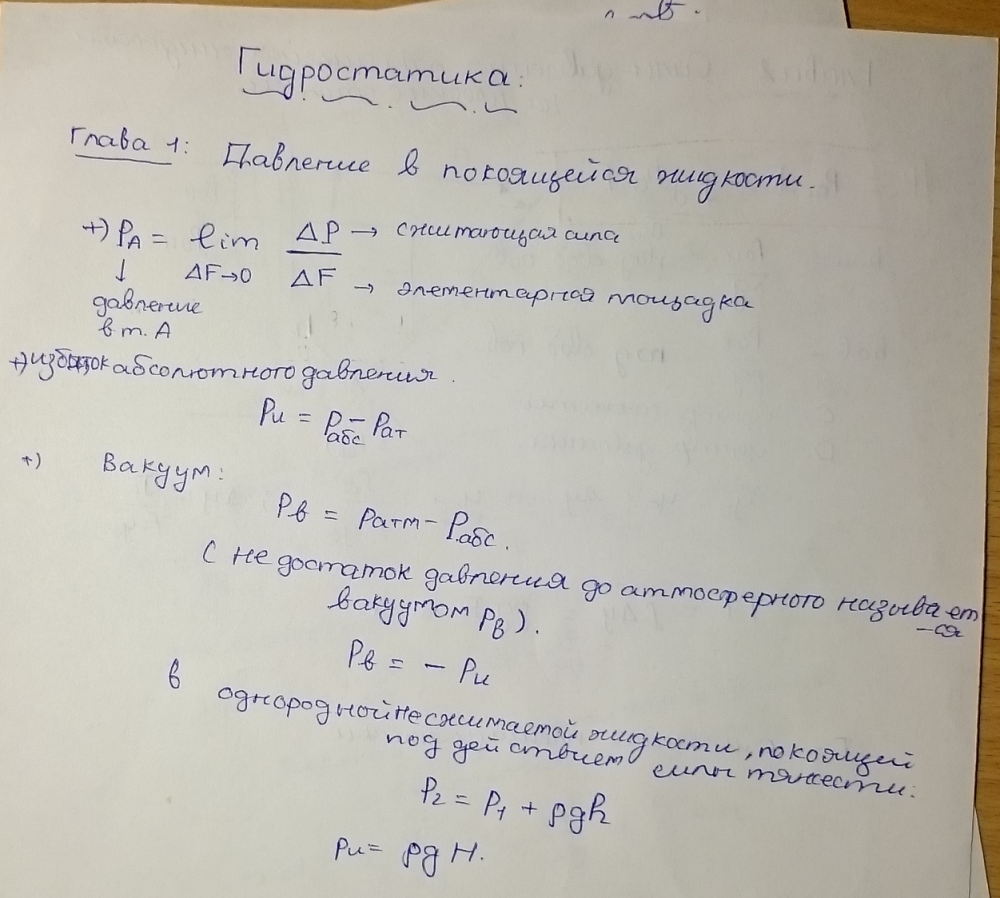 Гидростатика:
Глава 1: Давление в покоящейся жидкости.
+) P_A = lim ΔP → сжимающая сила
ΔF→0 ΔF → элементарной площадка
↓
давление
в т. А
+) избыток абсолютного давления.
Pи = Pабс – Pат
+) Вакуум:
Pв = Pатм – Pабс.
( не достаток давления до атмосферного называет
–ся
вакуумом Pв).
Pв = – Pи
в однородной несжимаемой жидкости, покоящей
под действием силы тяжести:
P₂ = P₁ + ρgh
Pи = ρg H.